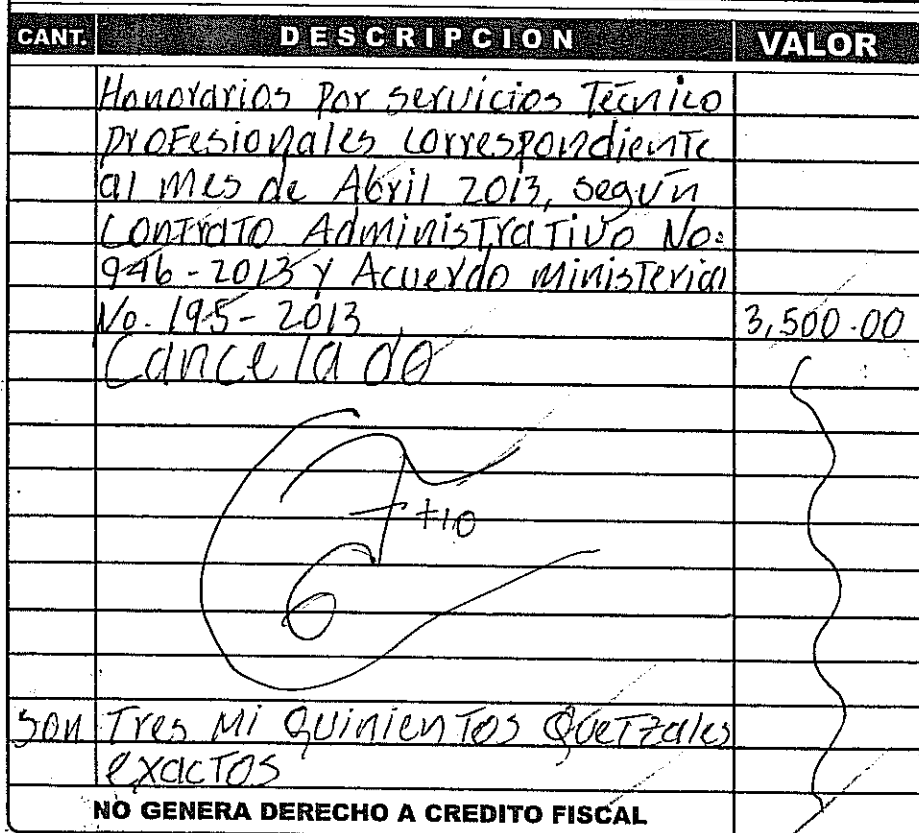 CANT. DESCRIPCION VALOR
Honorarios Por servicios Tecnico
profesionales correspondiente
al mes de Abril 2013, según
Contrato Administrativo No:
946-2013 y Acuerdo Ministerial
No. 195-2013 3,500.00
Cancelado
son Tres Mi Quinientos Quetzales
exactos
NO GENERA DERECHO A CREDITO FISCAL